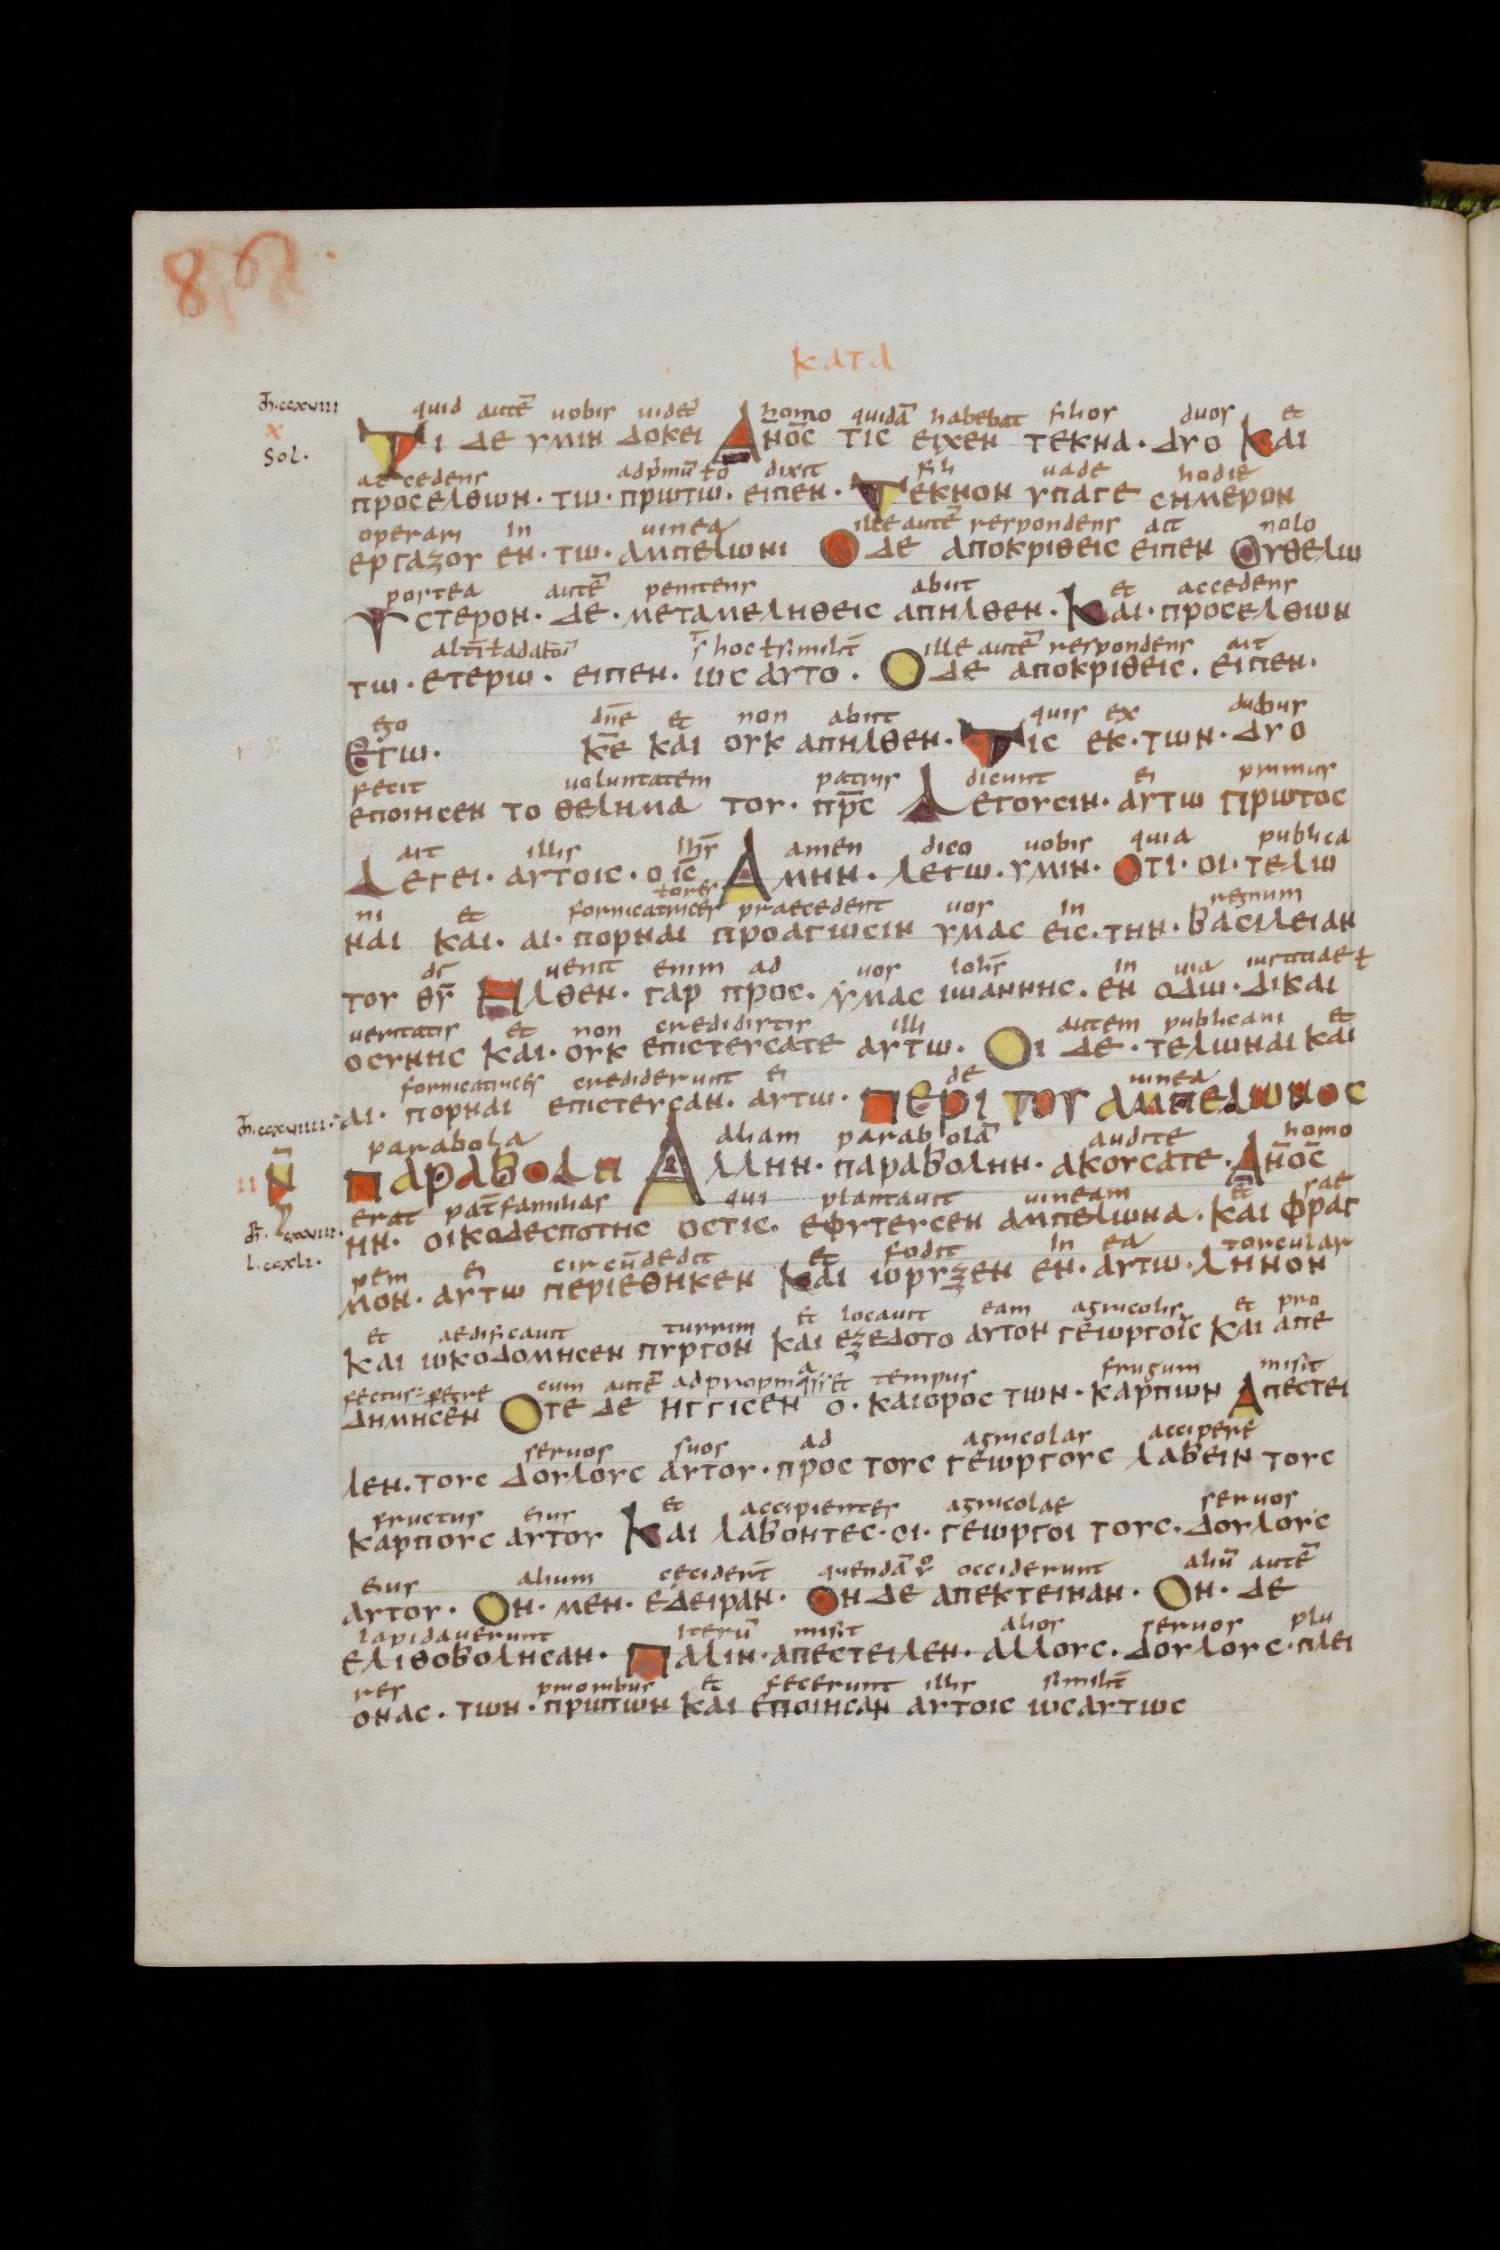 86.
ΚΑΤΑ
m̄. ccxviii
x
Sol.
quid autē uobis uidet̄ homo quidā habebat filios duos et
ΤΙ ΔΕ ΥΜΙΝ ΔΟΚΕΙ ΑΝ̄Ο̄C ΤΙC ΕΙΧΕΝ ΤΕΚΝΑ· ΔΥΟ ΚΑΙ
accedens ad p̄mū ł o dixit fili uade hodie
ΠΡΟCΕΛΘΩΝ· ΤΩ· ΠΡΩΤΩ· ΕΙΠΕΝ· ΤΕΚΝΟΝ ΥΠΑΓΕ CΗΜΕΡΟΝ
operari in uinea ille autē respondens ait nolo
ΕΡΓΑΖΟΥ ΕΝ· ΤΩ· ΑΜΠΕΛΩΝΙ Ο ΔΕ ΑΠΟΚΡΙΘΕΙC ΕΙΠΕΝ ΟΥΘΕΛΩ
postea autē penitens abiit et accedens
ΥCΤΕΡΟΝ· ΔΕ· ΜΕΤΑΜΕΛΗΘΕΙC ΑΠΗΛΘΕΝ· ΚΑΙ· ΠΡΟCΕΛΘΩΝ
hoc ł similit̄ ille autē respondens ait
ΤΩ· ΕΤΕΡΩ· ΕΙΠΕΝ· ΩC ΑΥΤΟ· Ο ΔΕ ΑΠΟΚΡΙΘΕΙC· ΕΙΠΕΝ·
ego dn̄e et non abiit quis ex duobus
ΕΓΩ· Κ̄Ε ΚΑΙ ΟΥΚ ΑΠΗΛΘΕΝ· ΤΙC ΕΚ· ΤΩΝ· ΔΥΟ
fecit uoluntatem patris dicunt ei primus
ΕΠΟΙΗCΕΝ ΤΟ ΘΕΛΗΜΑ ΤΟΥ· Π̄Ρ̄C ΛΕΓΟΥCΙΝ· ΑΥΤΩ ΠΡΩΤΟC
ait illis ih̄s amen dico uobis quia publica
ΛΕΓΕΙ· ΑΥΤΟΙC· Ο ΙC̄ ΑΜΗΝ· ΛΕΓΩ· ΥΜΙΝ· ΟΤΙ· ΟΙ· ΤΕΛΩ
tores
ni et fornicatrices praecedent uos in regnum
ΝΑΙ ΚΑΙ· ΑΙ· ΠΟΡΝΑΙ ΠΡΟΑΓΩCΙΝ ΥΜΑC ΕΙC· ΤΗΝ· ΒΑCΙΛΕΙΑΝ
dī uenit enim ad uos ioh̄s in uia iustitiae ł
ΤΟΥ ΘῩ ΗΛΘΕΝ· ΓΑΡ ΠΡΟC· ΥΜΑC ΙΩΑΝΝΗC· ΕΝ ΟΔΩ· ΔΙΚΑΙ
ueritatis et non credidistis illi autem publicani et
ΟCΥΝΗC ΚΑΙ· ΟΥΚ ΕΠΙCΤΕΥCΑΤΕ ΑΥΤΩ· ΟΙ ΔΕ· ΤΕΛΩΝΑΙ ΚΑΙ
fornicatrices crediderunt ei de uinea
ΑΙ· ΠΟΡΝΑΙ ΕΠΙCΤΕΥCΑΝ· ΑΥΤΩ· ΠΕΡΙ ΤΟΥ ΑΜΠΕΛΩΝΟC
m̄. ccxviiii
parabola aliam parabolā audite homo
ΠΑΡΑΒΟΛΗ ΑΛΛΗΝ· ΠΑΡΑΒΟΛΗΝ· ΑΚΟΥCΑΤΕ· ΑΝ̄Ο̄C
11
l. ccxli.
erat pat̄familias qui plantauit uineam et sae
ΗΝ· ΟΙΚΟΔΕCΠΟΤΗC ΟCΤΙC· ΕΦΥΤΕΥCΕΝ ΑΜΠΕΛΩΝΑ· ΚΑΙ ΦΡΑΓ
pem ei circūdedit et fodit in ea torcular
ΜΟΝ· ΑΥΤΩ ΠΕΡΙΕΘΗΚΕΝ ΚΑΙ ΩΡΥΞΕΝ ΕΝ· ΑΥΤΩ· ΛΗΝΟΝ
et aedificauit turrim et locauit eam agricolis et pro
ΚΑΙ ΩΚΟΔΟΜΗCΕΝ ΠΥΡΓΟΝ ΚΑΙ ΕΞΕΔΟΤΟ ΑΥΤΟΝ ΓΕΩΡΓΟΙC ΚΑΙ ΑΠΕ
fectus· peregre cum autē adpropinquasset tempus frugum misit
ΔΗΜΗCΕΝ ΟΤΕ ΔΕ ΗΓΓΙCΕΝ Ο· ΚΑΙΟΡΟC ΤΩΝ· ΚΑΡΠΩΝ ΑΠΕCΤΕΙ
seruos suos ad agricolas accipere
ΛΕΝ· ΤΟΥC ΔΟΥΛΟΥC ΑΥΤΟΥ· ΠΡΟC ΤΟΥC ΓΕΩΡΓΟΥC ΛΑΒΕΙΝ ΤΟΥC
fructus eius et accipientes agricolae seruos
ΚΑΡΠΟΥC ΑΥΤΟΥ ΚΑΙ ΛΑΒΟΝΤΕC· ΟΙ· ΓΕΩΡΓΟΙ ΤΟΥC· ΔΟΥΛΟΥC
eius alium cecider̄t quendā occiderunt aliū autē
ΑΥΤΟΥ· ΟΝ· ΜΕΝ· ΕΔΕΙΡΑΝ· ΟΝ ΔΕ ΑΠΕΚΤΕΙΝΑΝ· ΟΝ· ΔΕ
lapidauerunt iterū misit alios seruos plu
ΕΛΙΘΟΒΟΛΗCΑΝ· ΠΑΛΙΝ· ΑΠΕCΤΕΙΛΕΝ· ΑΛΛΟΥC· ΔΟΥΛΟΥC· ΠΛΕΙ
res prioribus et fecerunt illis similit̄
ΟΝΑC· ΤΩΝ· ΠΡΩΤΩΝ ΚΑΙ ΕΠΟΙΗCΑΝ ΑΥΤΟΙC ΩCΑΥΤΩC